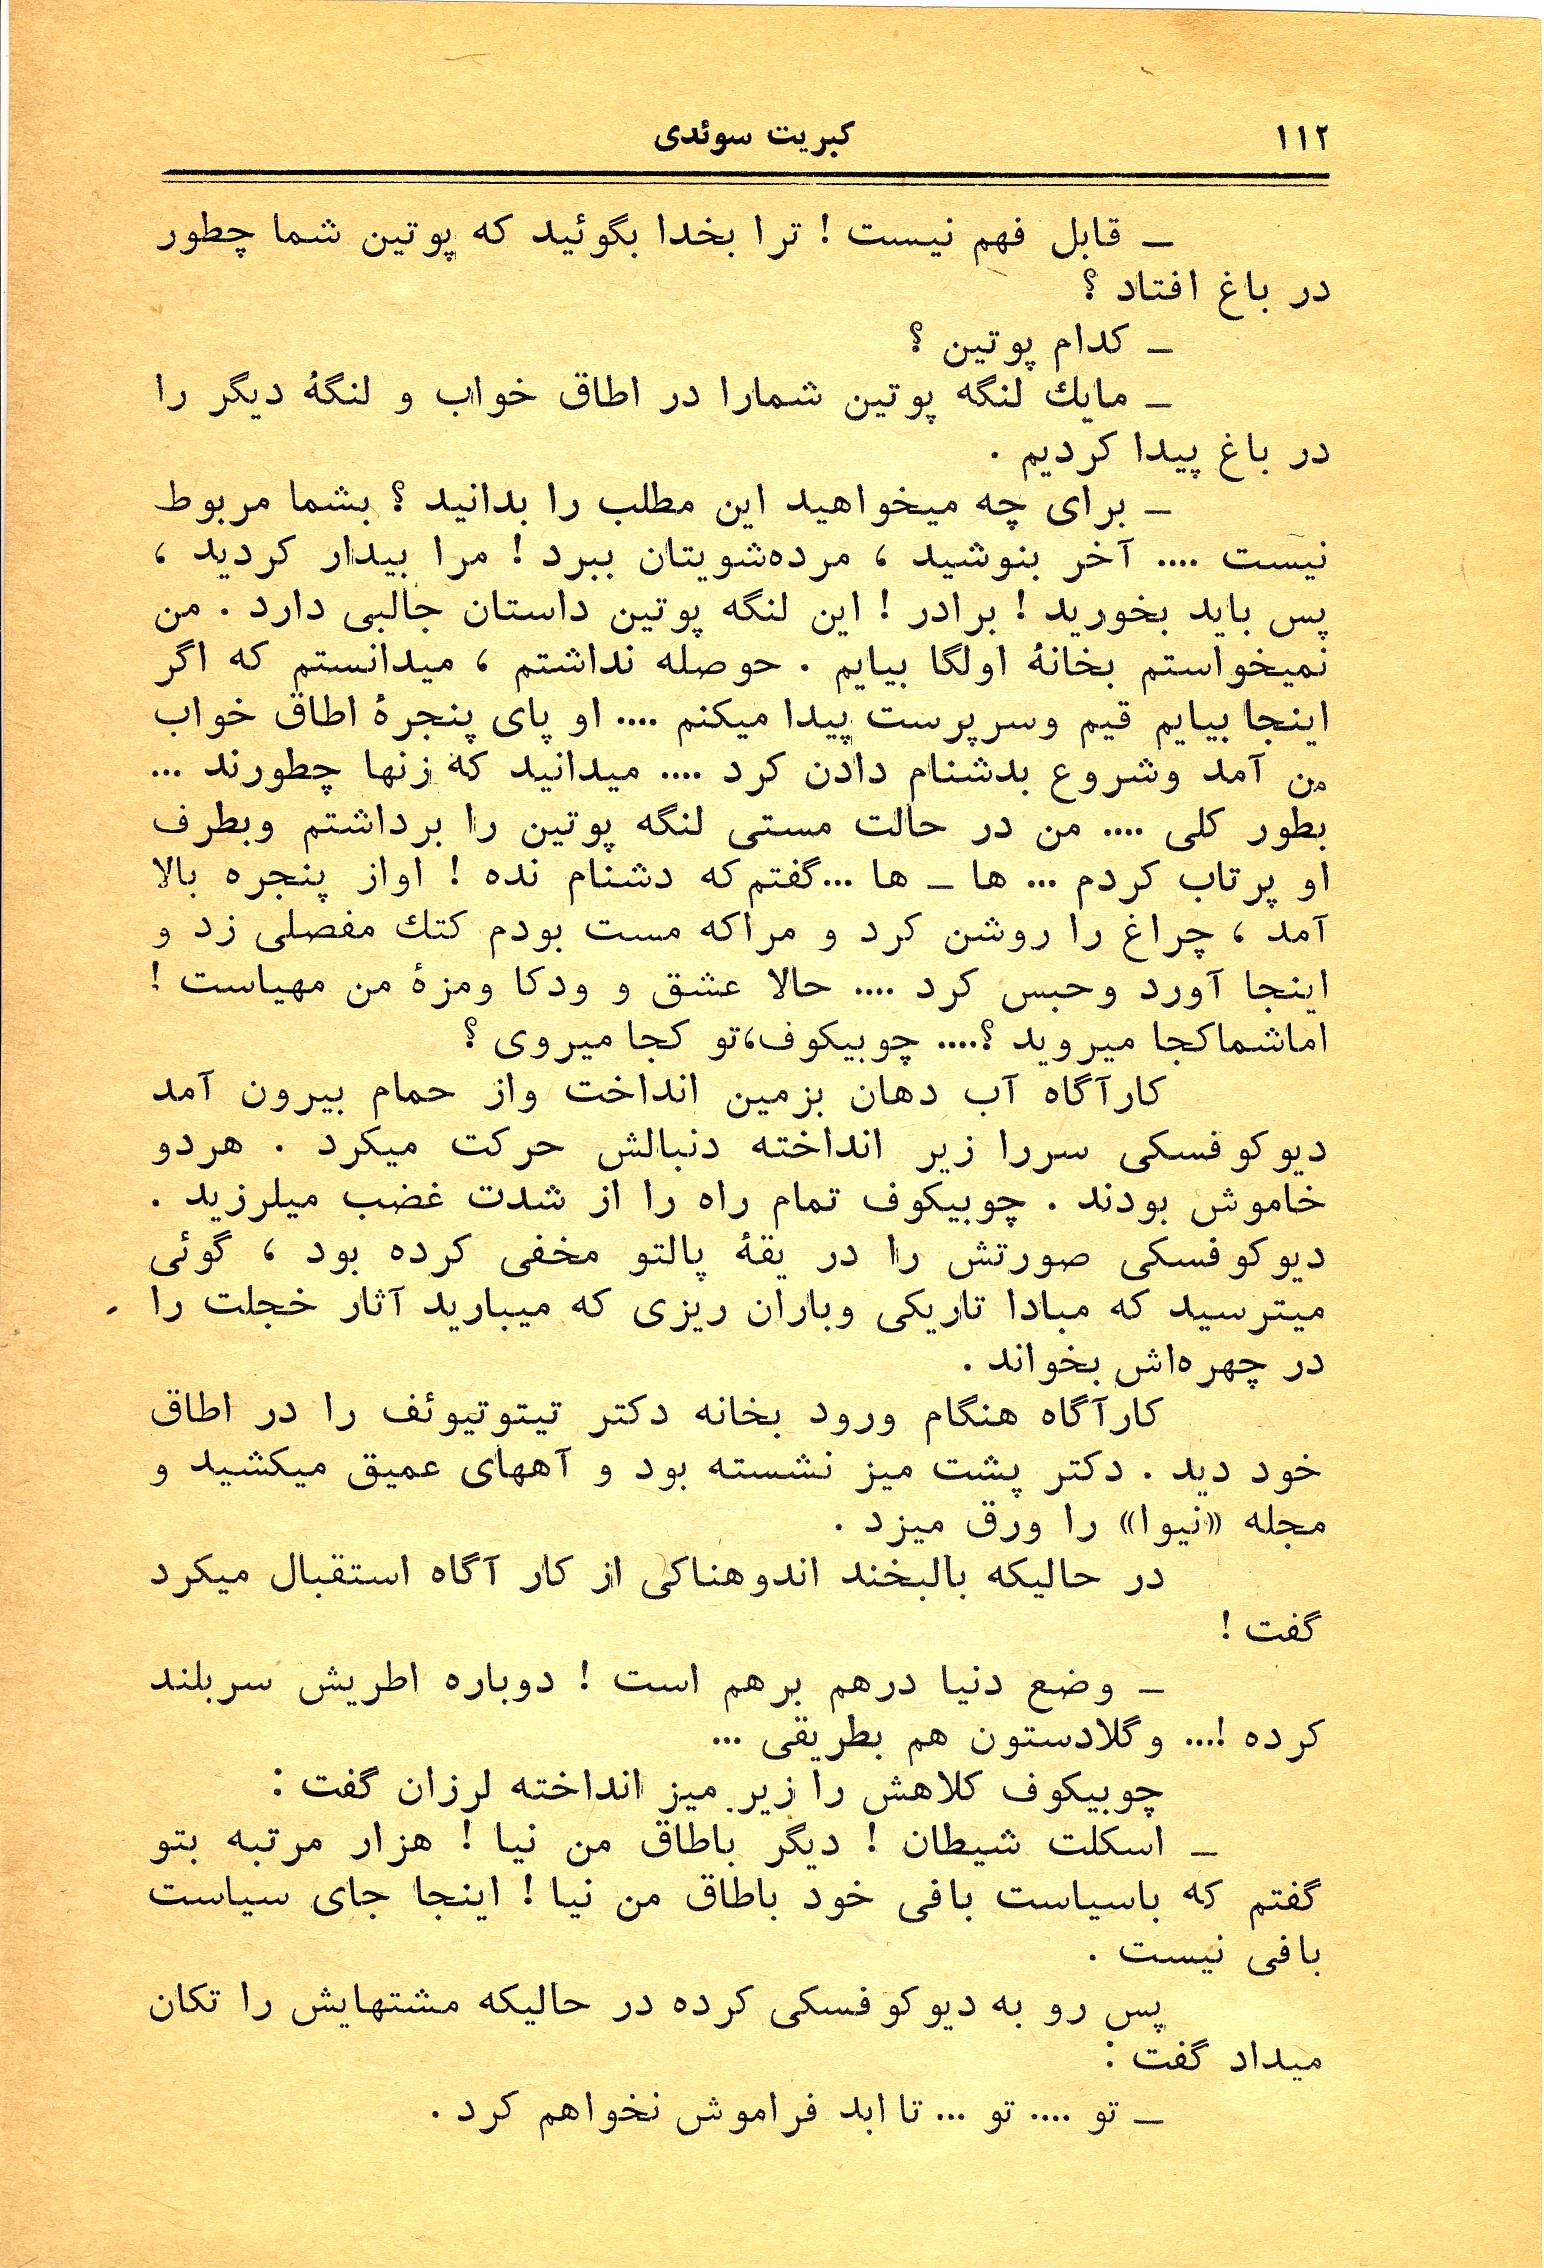 ۱۱۲
کبریت سوئدی
ــ قابل فهم نیست ! ترا بخدا بگوئید که پوتین شما چطور
در باغ افتاد ؟
ــ کدام پوتین ؟
ــ مایك لنگه پوتین شمارا در اطاق خواب و لنگهٔ دیگر را
در باغ پیدا کردیم .
ــ برای چه میخواهید این مطلب را بدانید ؟ بشما مربوط
نیست .... آخر بنوشید ، مرده‌شویتان ببرد ! مرا بیدار کردید ،
پس باید بخورید ! برادر ! این لنگه پوتین داستان جالبی دارد . من
نمیخواستم بخانهٔ اولگا بیایم . حوصله نداشتم ، میدانستم که اگر
اینجا بیایم قیم وسرپرست پیدا میکنم .... او پای پنجرهٔ اطاق خواب
من آمد وشروع بدشنام دادن کرد .... میدانید که زنها چطورند ...
بطور کلی .... من در حالت مستی لنگه پوتین را برداشتم وبطرف
او پرتاب کردم ... ها ــ ها ...گفتم که دشنام نده ! اواز پنجره بالا
آمد ، چراغ را روشن کرد و مراکه مست بودم کتك مفصلی زد و
اینجا آورد وحبس کرد .... حالا عشق و ودکا ومزهٔ من مهیاست !
اماشماکجا میروید ؟.... چوبیکوف،تو کجا میروی ؟
کارآگاه آب دهان بزمین انداخت واز حمام بیرون آمد
دیوکوفسکی سررا زیر انداخته دنبالش حرکت میکرد . هردو
خاموش بودند . چوبیکوف تمام راه را از شدت غضب میلرزید .
دیوکوفسکی صورتش را در یقهٔ پالتو مخفی کرده بود ، گوئی
میترسید که مبادا تاریکی وباران ریزی که میبارید آثار خجلت را
در چهره‌اش بخواند .
کارآگاه هنگام ورود بخانه دکتر تیتوتیوئف را در اطاق
خود دید . دکتر پشت میز نشسته بود و آههای عمیق میکشید و
مجله «نیوا» را ورق میزد .
در حالیکه بالبخند اندوهناکی از کار آگاه استقبال میکرد
گفت !
ــ وضع دنیا درهم برهم است ! دوباره اطریش سربلند
کرده !... وگلادستون هم بطریقی ...
چوبیکوف کلاهش را زیر میز انداخته لرزان گفت :
ــ اسکلت شیطان ! دیگر باطاق من نیا ! هزار مرتبه بتو
گفتم که باسیاست بافی خود باطاق من نیا ! اینجا جای سیاست
بافی نیست .
پس رو به دیوکوفسکی کرده در حالیکه مشتهایش را تکان
میداد گفت :
ــ تو .... تو ... تا ابد فراموش نخواهم کرد .